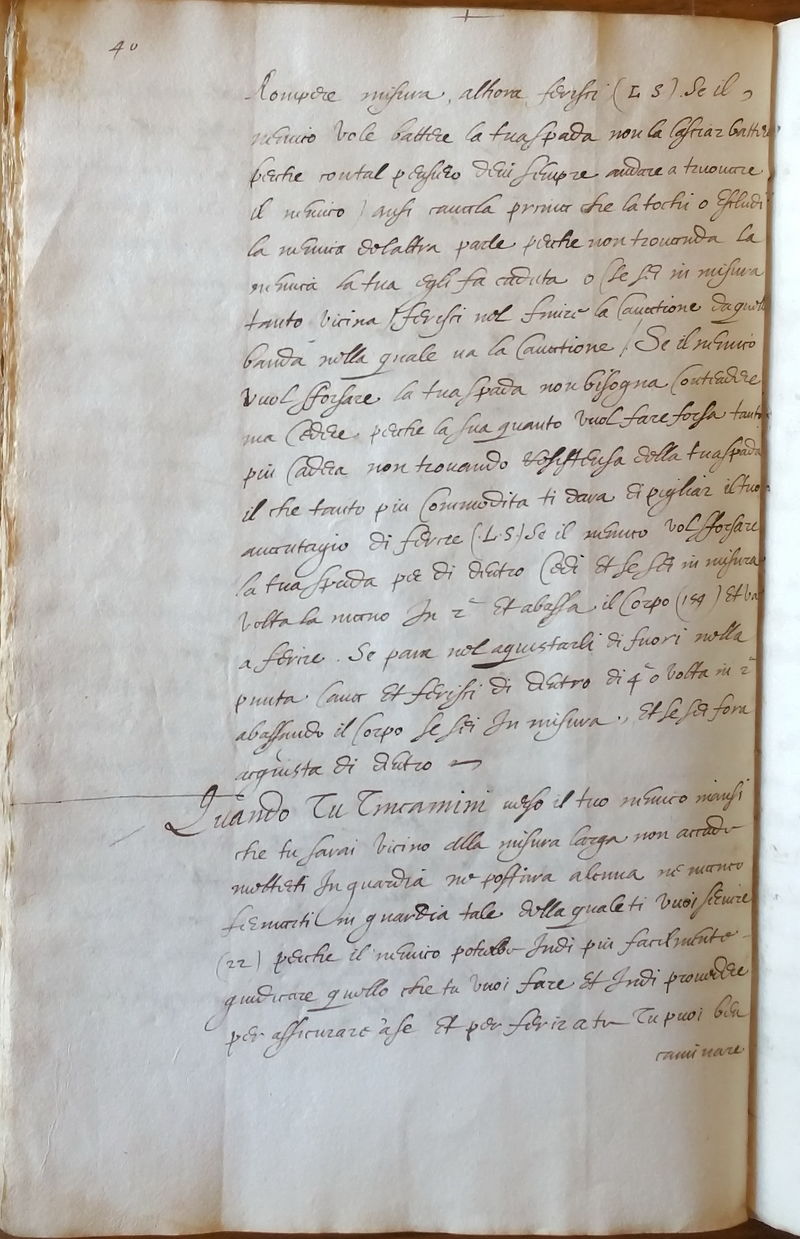 40
Rompere misura, alhora ferisci (L S) Se il
nemico vole battere la tua spada non la lasciar battere
perche con tal pensiero devi sempre andare a truovare
il nemico) ansi cavala prima che la tochi o escludi
la nemica del altra parte perche non trovando la
nemica la tua egli fa caduta o (se sei in misura
tanto vicina) ferisci nel finire la Cavatione da quella
banda nella quale va la Cavatione / Se il nemico
vuol sforsare la tua spada non bisogna Contendere
ma Cedere perche la sua quanto vuol fare forsa tanto
piu Cadera non trovando resistensa della tua spada
il che tanto piu Commodita ti dara di pigliar il tuo
avantagio di ferire (L.S.) Se il nemico vol sforsare
la tua spada per di dentro Cedi et se sei in misura
volta la mano In 2ª et abassa il Corpo (154) et va
a ferire. Se para nel aquistarli di fuori nella
punta Cava et ferisci di dentro di 4ª o volta in 2ª
abassando il Corpo se sei In misura, et se sei fora
acquista di dentro
Quando Tu Tincamini verso il tuo nemico inansi
che tu sarai vicino alla misura larga non accade
metterti In guardia ne postura alcuna ne manco
fermarti in guardia tale della quale ti vuoi servire
(22) perche il nemico potrebe Indi piu facilmente
giudicare quello che tu vuoi fare et Indi provedere
per assicurare à se et per ferir a te Tu puoi ben
caminare